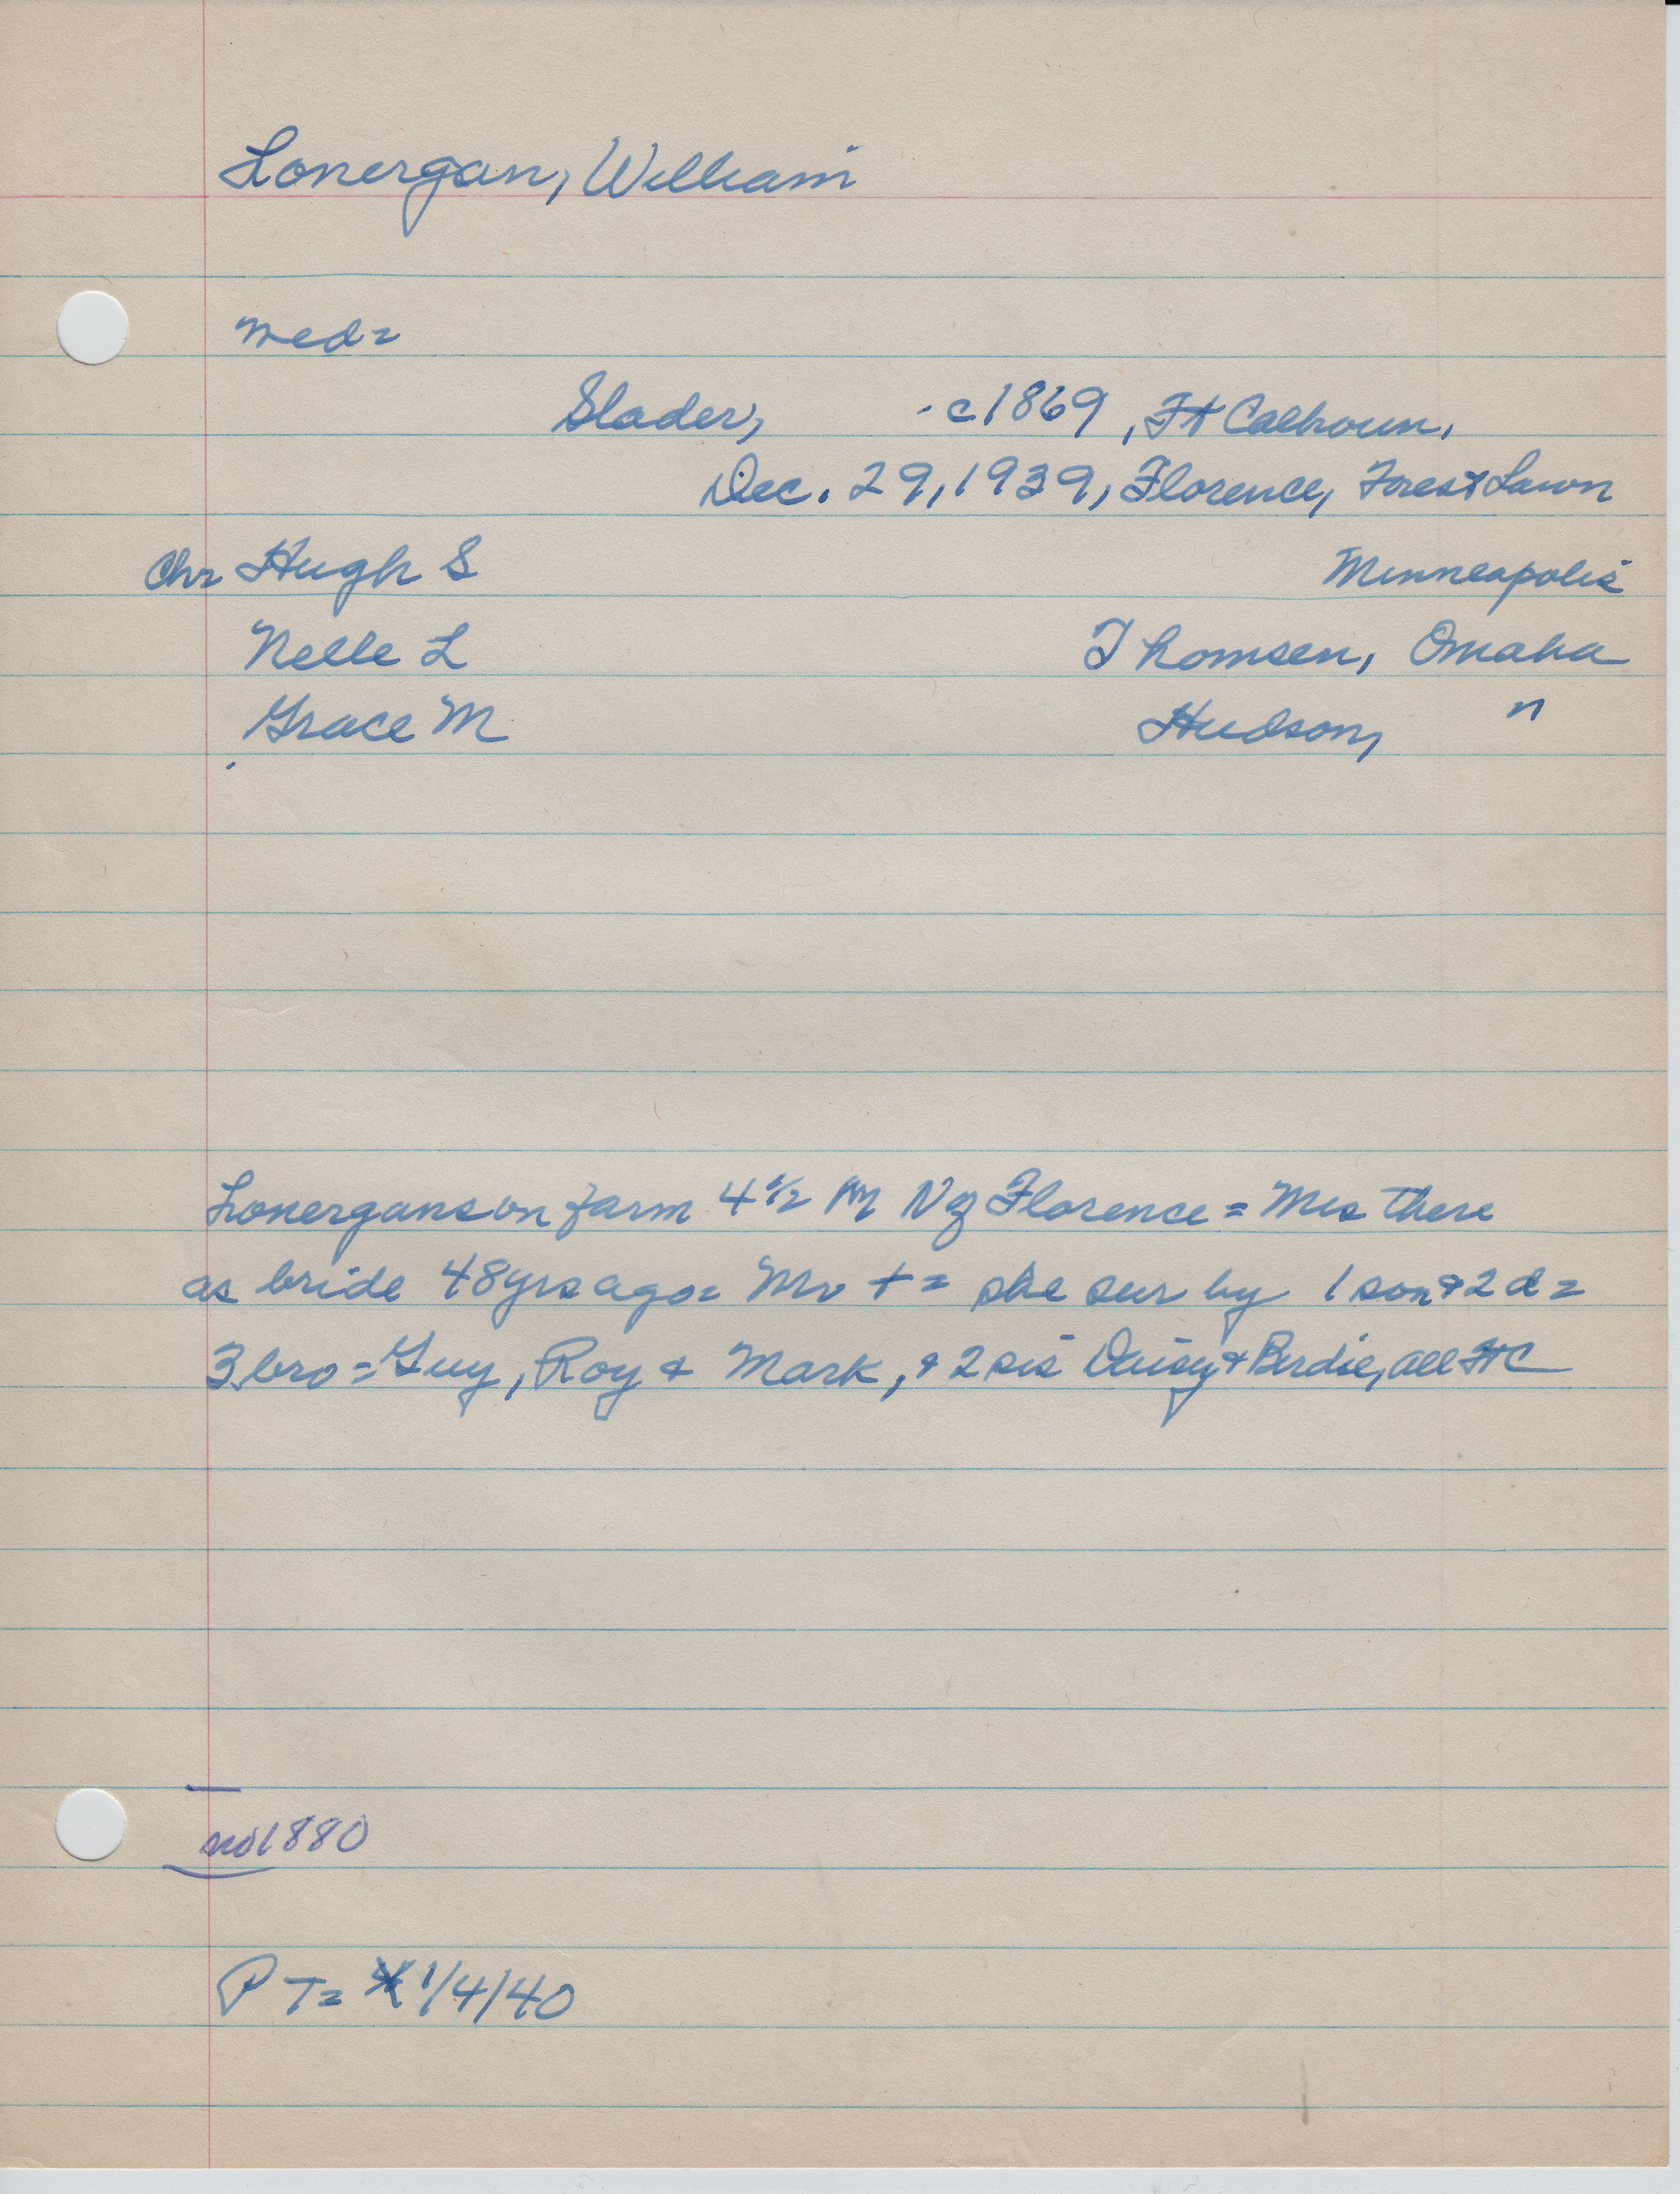 Lonergan, William
med=
Slader, - c1869, Ft Calhoun,
Dec. 29, 1939, Florence, Forest Lawn
Ch= Hugh S Minneapolis
Nelle L Thomsen, Omaha
Grace M Hudson, "
Lonergans on farm 4 1/2 M N of Florence = Mrs there
as bride 48 yrs ago= Mr + = she sur by 1 son & 2 d =
3 bro = Guy, Roy & Mark, & 2 sis Daisy & Birdie, all FtC
no 1880
PT= 1/4/40